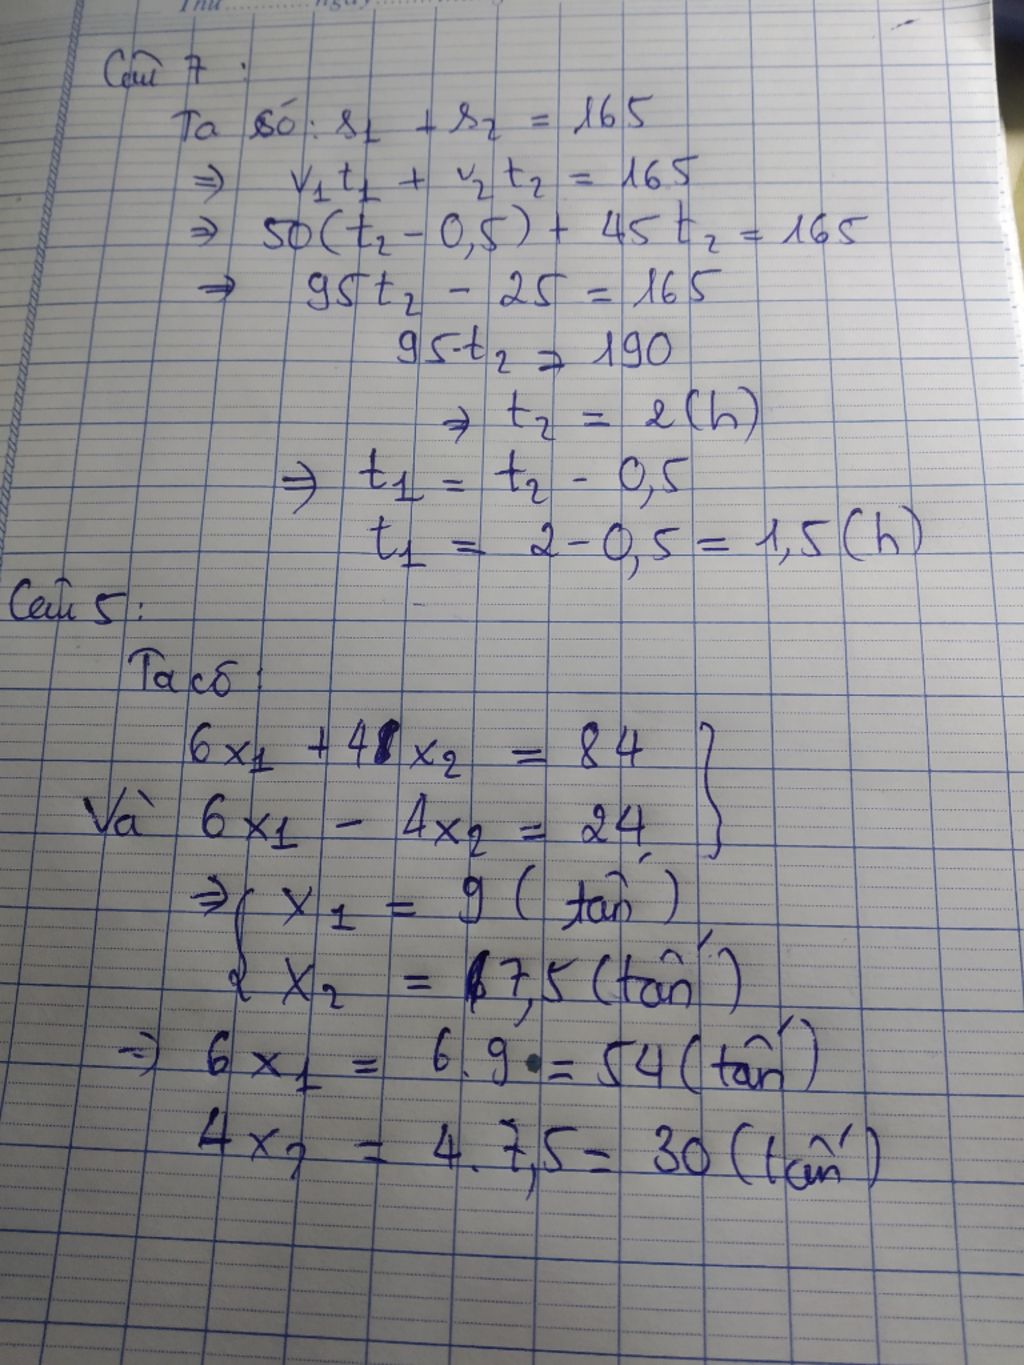 Thứ ngày
Câu 7 :
Ta có : s1 + s2 = 165
⇒ v1 t1 + v2 t2 = 165
⇒ 50(t2 - 0,5) + 45 t2 = 165
⇒ 95t2 - 25 = 165
95t2 ⇒ 190
⇒ t2 = 2 (h)
⇒ t1 = t2 - 0,5
t1 = 2 - 0,5 = 1,5 (h)
Câu 5 :
Ta có :
6x1 + 4x2 = 84 }
Và 6x1 - 4x2 = 24 }
⇒ { x1 = 9 ( tấn )
{ x2 = 7,5 (tấn )
⇒ 6x1 = 6.9 = 54 (tấn )
4x2 = 4.7,5 = 30 (tấn )